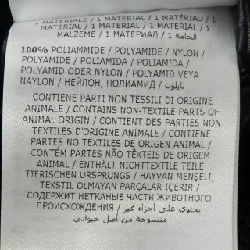 1 MATERIALE / 1 MATERIAL / 1 MATÉRIAU
1 MATERIAL / 1 MATERIAL / 1 MATERIAL / 1
MALZEME / 1 МАТЕРИАЛ / الخامة 1
100% POLIAMMIDE / POLYAMIDE / NYLON /
POLYAMIDE / POLIAMIDA / POLIAMIDA /
POLYAMID ODER NYLON / POLYAMID VEYA
NAYLON / НЕЙЛОН, ПОЛИАМИД / نايلون
CONTIENE PARTI NON TESSILI DI ORIGINE
ANIMALE / CONTAINS NON-TEXTILE PARTS OF
ANIMAL ORIGIN / CONTIENT DES PARTIES NON
TEXTILES D'ORIGINE ANIMALE / CONTIENE
PARTES NO TEXTILES DE ORIGEN ANIMAL /
CONTÉM PARTES NÃO TÊXTEIS DE ORIGEM
ANIMAL / ENTHÄLT NICHTTEXTILE TEILE
TIERISCHEN URSPRUNGS / HAYVAN MENŞELİ,
TEKSTİL OLMAYAN PARÇALAR İÇERİR /
СОДЕРЖИТ НЕТКАНЫЕ ЧАСТИ ЖИВОТНОГО
ПРОИСХОЖДЕНИЯ / يحتوي على أجزاء غير
منسوجة من أصل حيواني